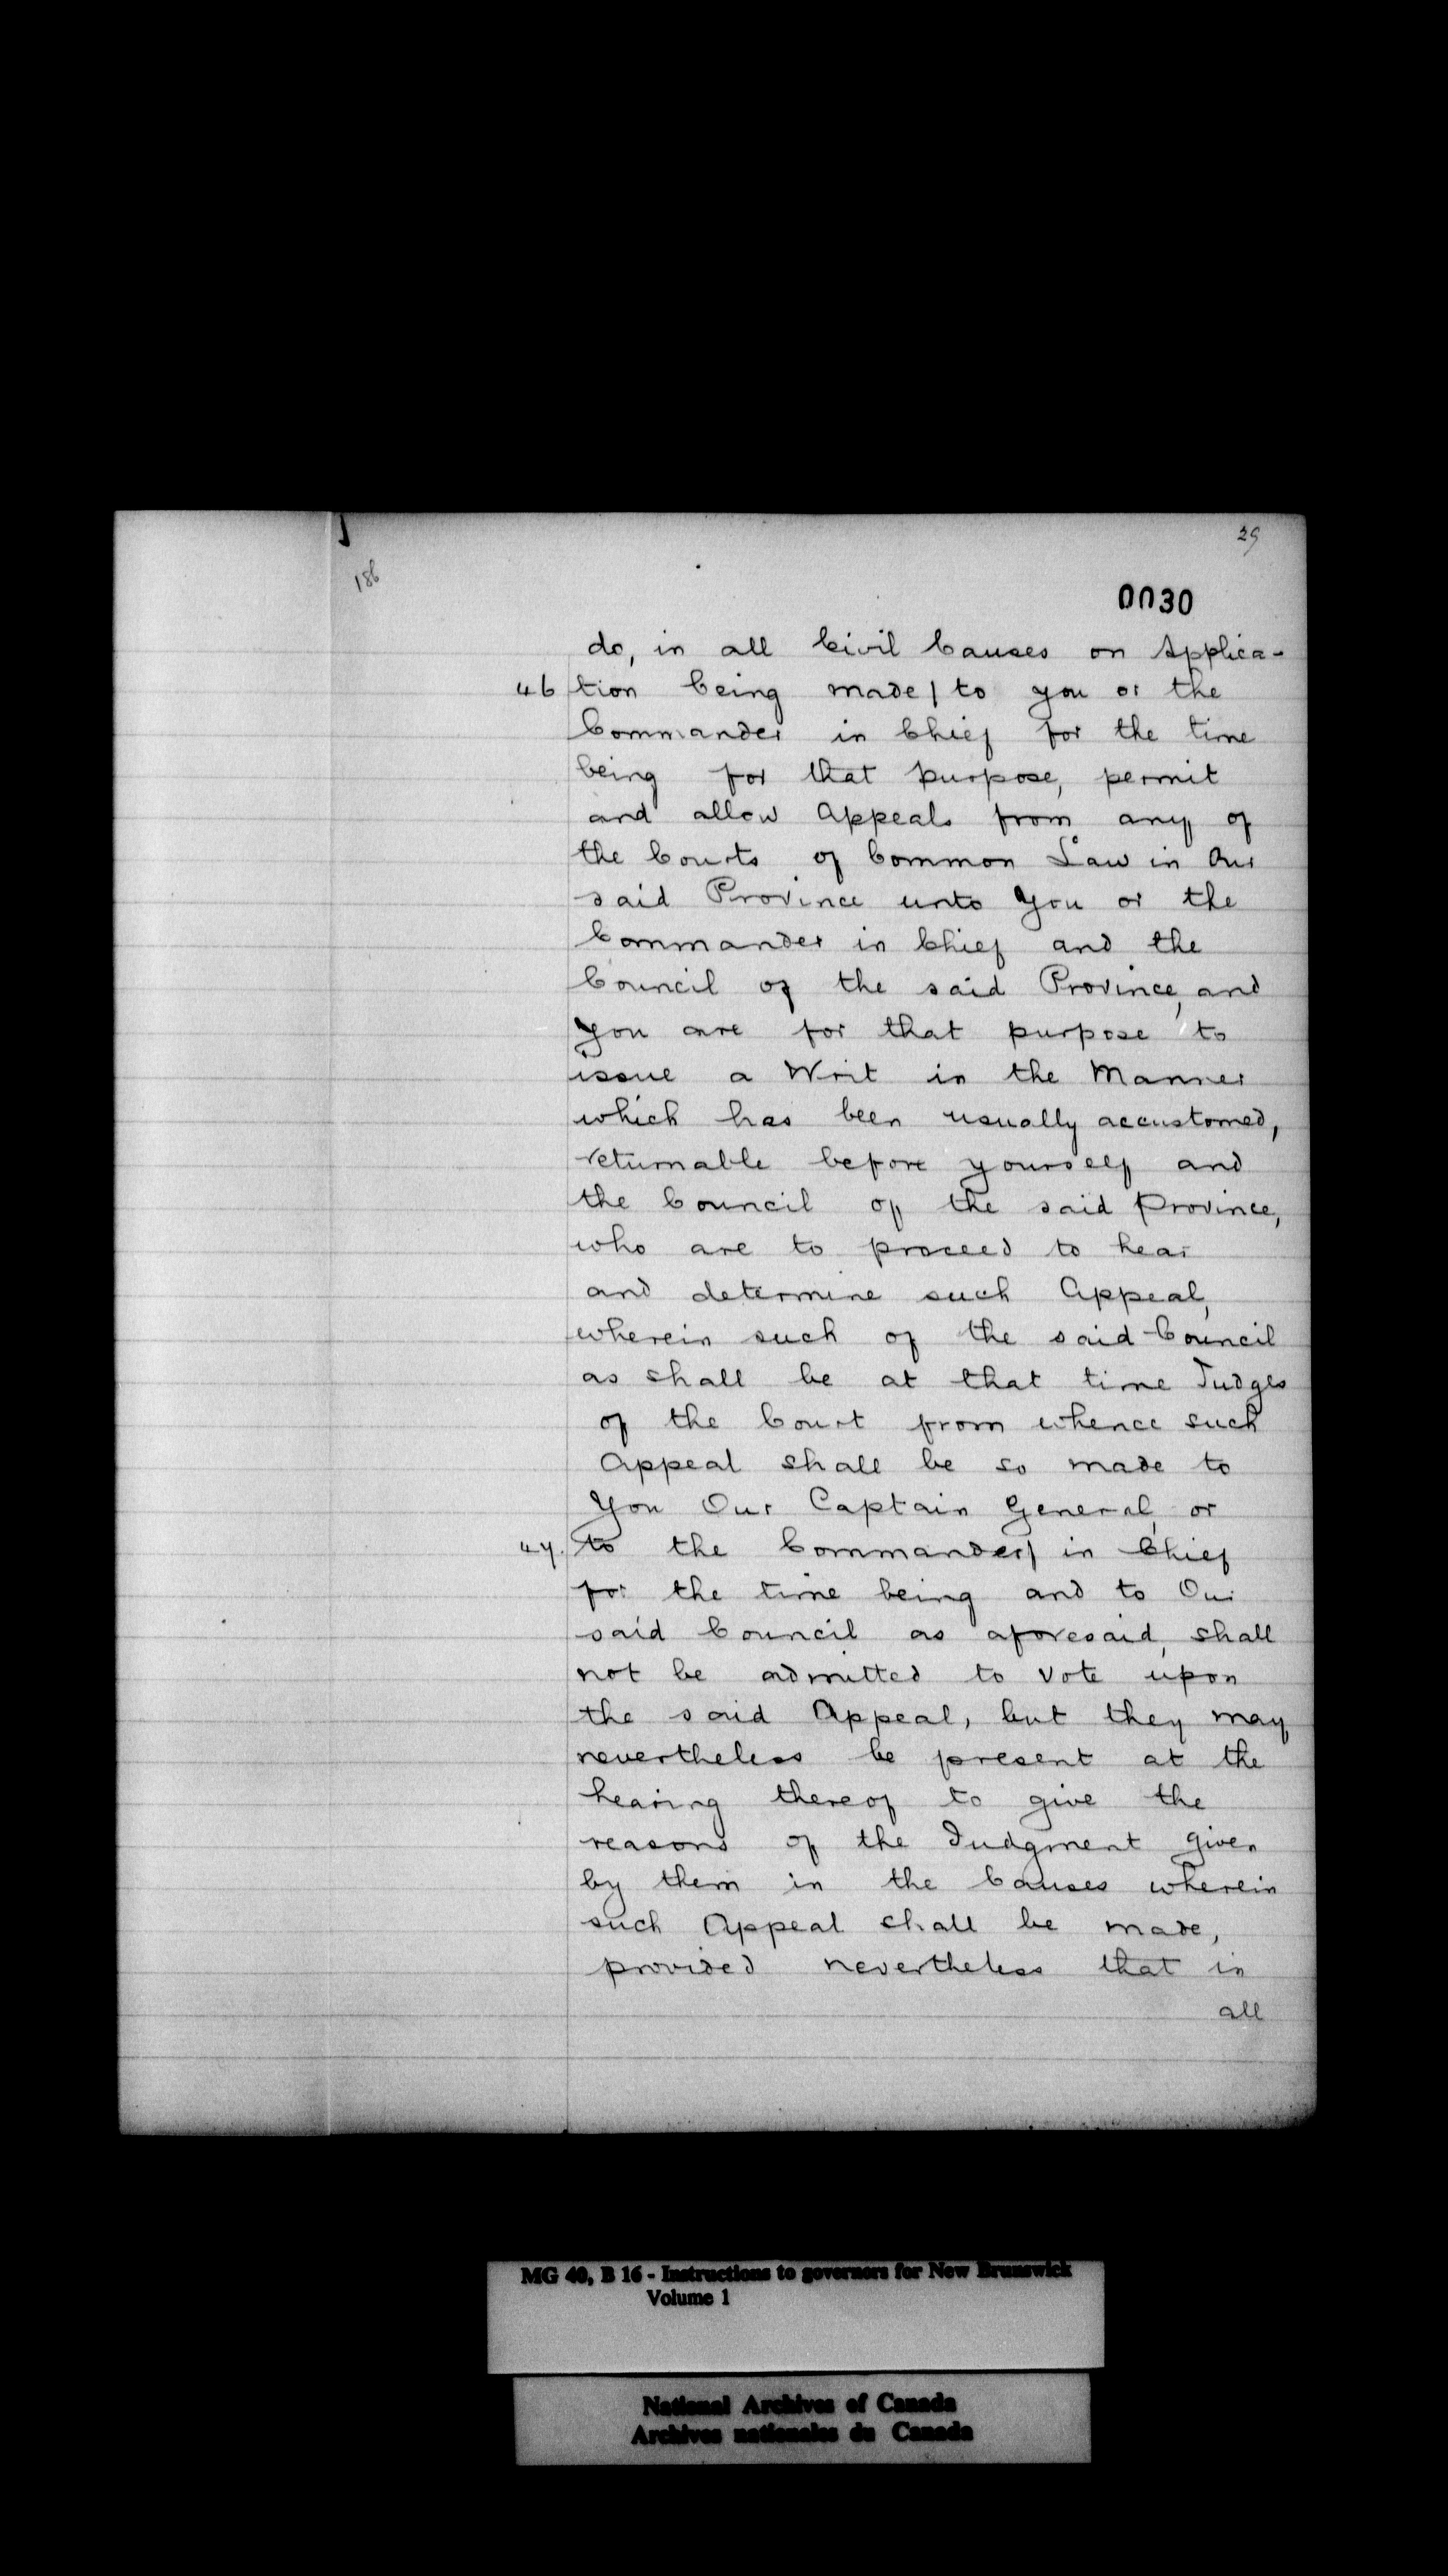 29
186
0030
do, in all Civil Causes on Applica-
46 tion being made / to you or the
Commander in Chief for the time
being for that purpose, permit
and allow Appeals from any of
the Courts of Common Law in Our
said Province unto You or the
Commander in Chief and the
Council of the said Province, and
you are for that purpose to
issue a Writ in the Manner
which has been usually accustomed,
returnable before yourself and
the Council of the said Province,
who are to proceed to hear
and determine such Appeal,
wherein such of the said Council
as shall be at that time Judges
of the Court from whence such
Appeal shall be so made to
You Our Captain General, or
47. to the Commander / in Chief
for the time being and to Our
said Council as aforesaid, shall
not be admitted to vote upon
the said Appeal, but they may
nevertheless be present at the
hearing thereof to give the
reasons of the Judgment given
by them in the Causes wherein
such Appeal shall be made,
provided nevertheless that in
all
MG 40, B 16 - Instructions to governors for New Brunswick
Volume 1
National Archives of Canada
Archives nationales du Canada